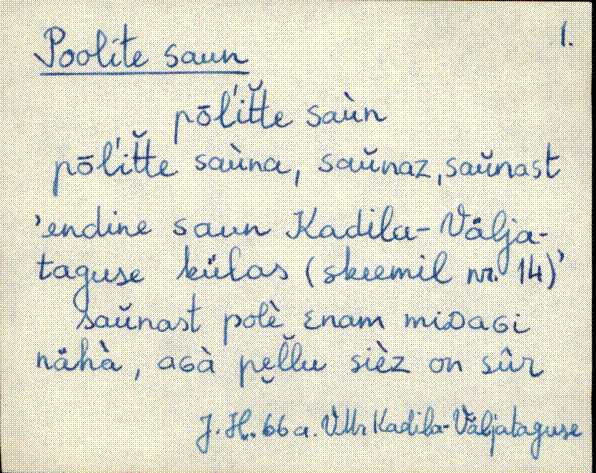 1.
Poolite saun
pōĺit̆te saùn
pōĺit̆te saùna, saŭnaz, saŭnast
'endine saun Kadila-Välja-
taguse külas (skeemil nr. 14)'
saŭnast polè ɛnam miᴅaɢi
nähà, aɢà pe̮l̆lu sièz on sûr
J. H. 66 a. VMr Kadila-Väljataguse